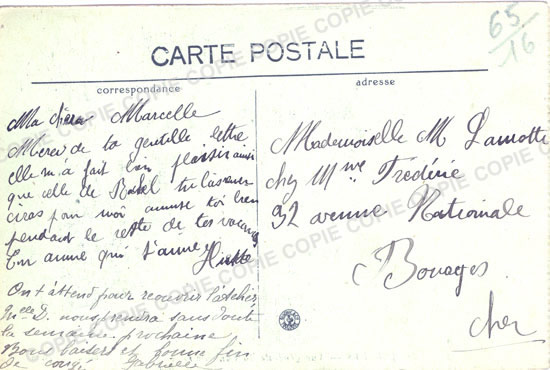 65
16
CARTE POSTALE
correspondance
adresse
Ma chère Marcelle
Merci de ta gentille lettre
elle m'a fait bon plaisir ainsi
que celle de tu la
pour moi amuse toi bien
pendant le reste de tes vacances
Ton amie qui t'aime
On t'attend pour recouvrir l'atelier
Melle nous prendra sans doute
la semaine prochaine
Bons baisers et bonne fin
de congé Gabrielle
Mademoiselle M Lamotte
chez Mme Frédéric
92 avenue Nationale
Bourges
Cher
COPIE COPIE COPIE COPIE COPIE